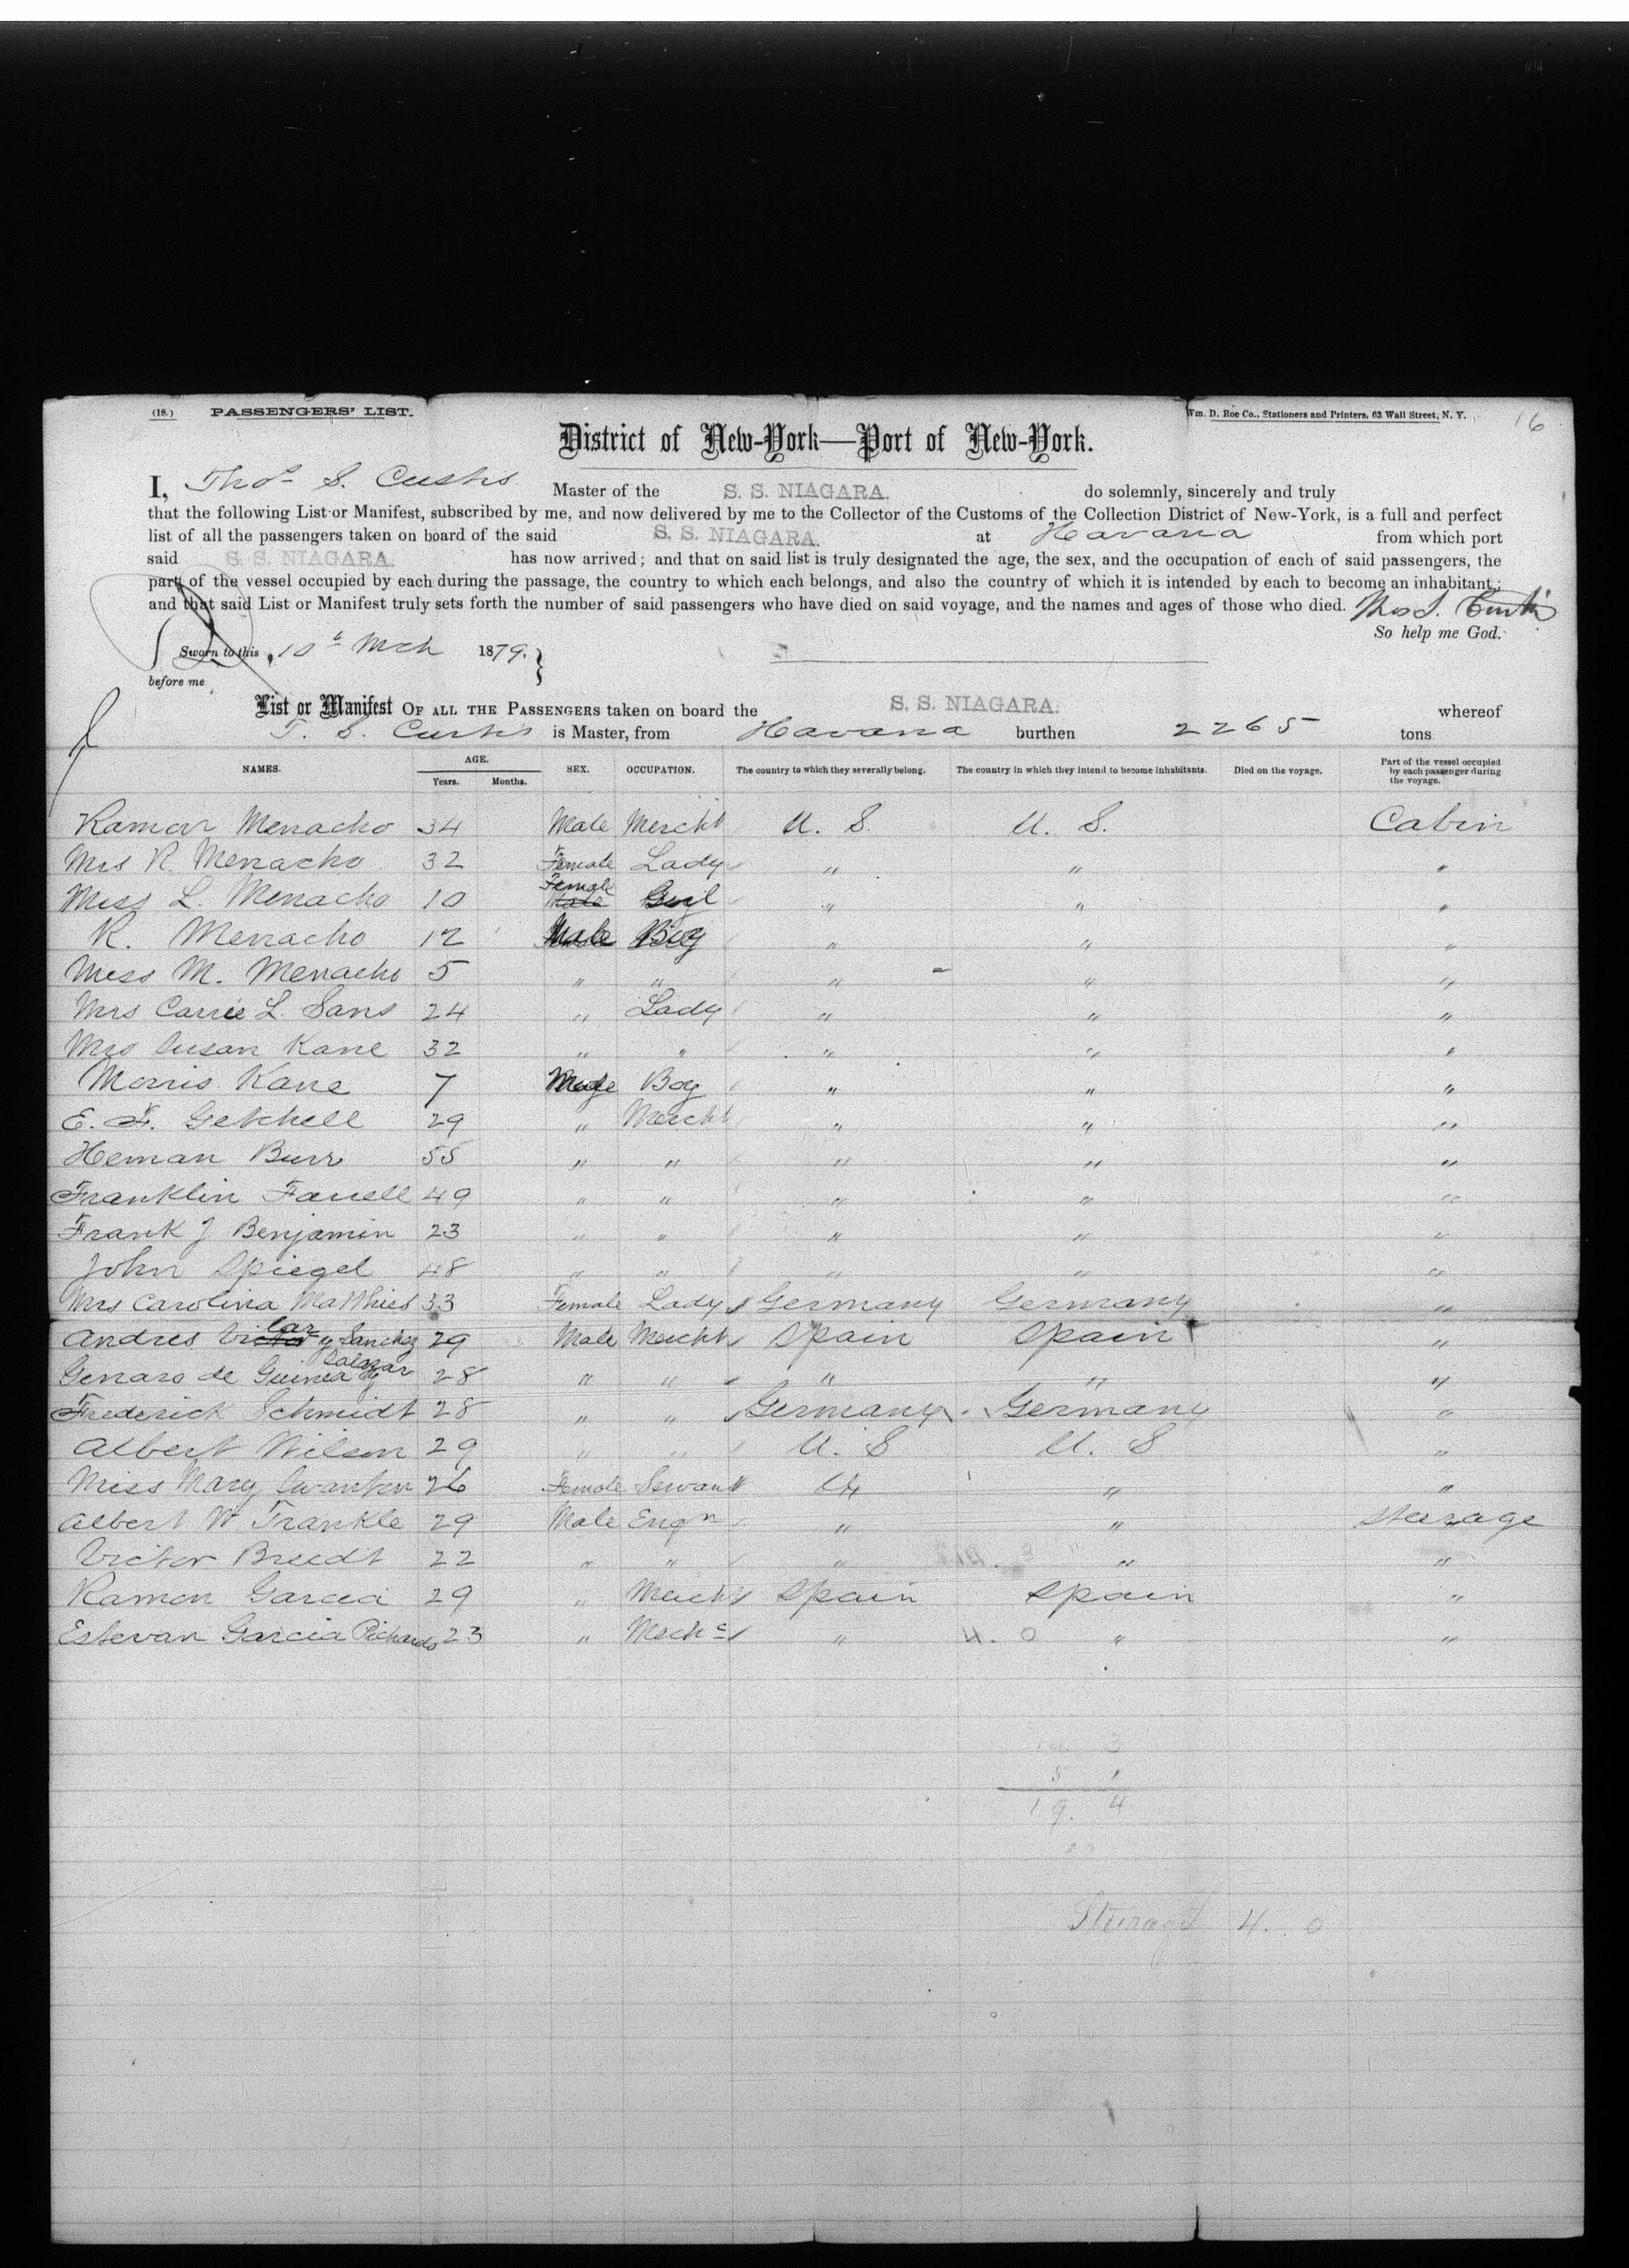 (18.) PASSENGERS' LIST. Wm. D. Roe Co., Stationers and Printers, 63 Wall Street, N. Y. 16
District of New-York—Port of New-York.
I, Thos S. Curtis Master of the S. S. NIAGARA. do solemnly, sincerely and truly
that the following List or Manifest, subscribed by me, and now delivered by me to the Collector of the Customs of the Collection District of New-York, is a full and perfect
list of all the passengers taken on board of the said S. S. NIAGARA. at Havana from which port
said S. S. NIAGARA. has now arrived; and that on said list is truly designated the age, the sex, and the occupation of each of said passengers, the
part of the vessel occupied by each during the passage, the country to which each belongs, and also the country of which it is intended by each to become an inhabitant;
and that said List or Manifest truly sets forth the number of said passengers who have died on said voyage, and the names and ages of those who died. Thos S. Curtis
So help me God.
Sworn to this 10th Mch 1879.
before me
List or Manifest OF ALL THE PASSENGERS taken on board the S. S. NIAGARA. whereof
T. S. Curtis is Master, from Havana burthen 2265 tons
NAMES. AGE. Years. Months. SEX. OCCUPATION. The country to which they severally belong. The country in which they intend to become inhabitants. Died on the voyage. Part of the vessel occupied by each passenger during the voyage.
Ramon Menacho 34 Male Mercht U. S. U. S. Cabin
Mrs R. Menacho 32 Female Lady " " "
Miss L. Menacho 10 Female Girl " " "
R. Menacho 12 Male Boy " " "
Miss M. Menacho 5 " " " " "
Mrs Carrie L. Sans 24 " Lady " " "
Mrs Susan Kane 32 " " " " "
Morris Kane 7 Male Boy " " "
E. F. Getchell 29 " Mercht " " "
Heman Burr 55 " " " " "
Franklin Farrell 49 " " " " "
Frank J Benjamin 23 " " " " "
John Spiegel 48 " " " " "
Mrs Carolina Matthies 33 Female Lady Germany Germany "
Andres Vicar y Sanchez 29 Male Mercht Spain Spain "
Genaro de Guinea y Salazar 28 " " " " "
Frederick Schmidt 28 " " Germany Germany "
Albert Wilson 29 " " U. S U. S "
Miss Mary Swanton 26 Female Servant " " "
Albert W Frankle 29 Male Engn " " Steerage
Victor Bredt 22 " " " " "
Ramon Garcia 29 " Mercht Spain Spain "
Estevan Garcia Richards 23 " Mechc " 4. 0 " "
3
5 1
19. 4
Steerage 4. 0